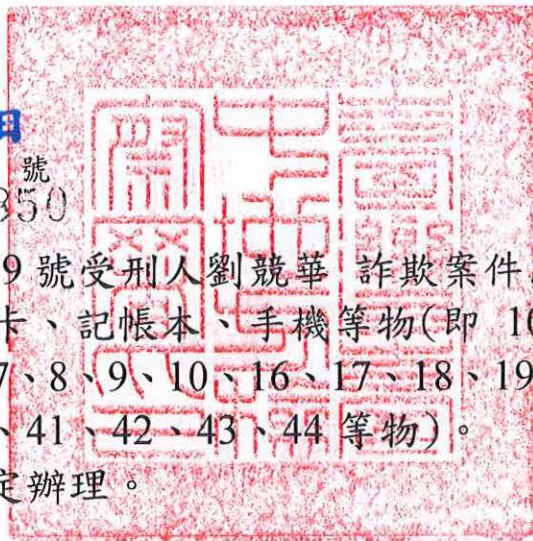 號
350
9 號受刑人劉競華 詐欺案件
卡、記帳本、手機等物(即 10
7、8、9、10、16、17、18、19
、41、42、43、44 等物)。
定辦理。